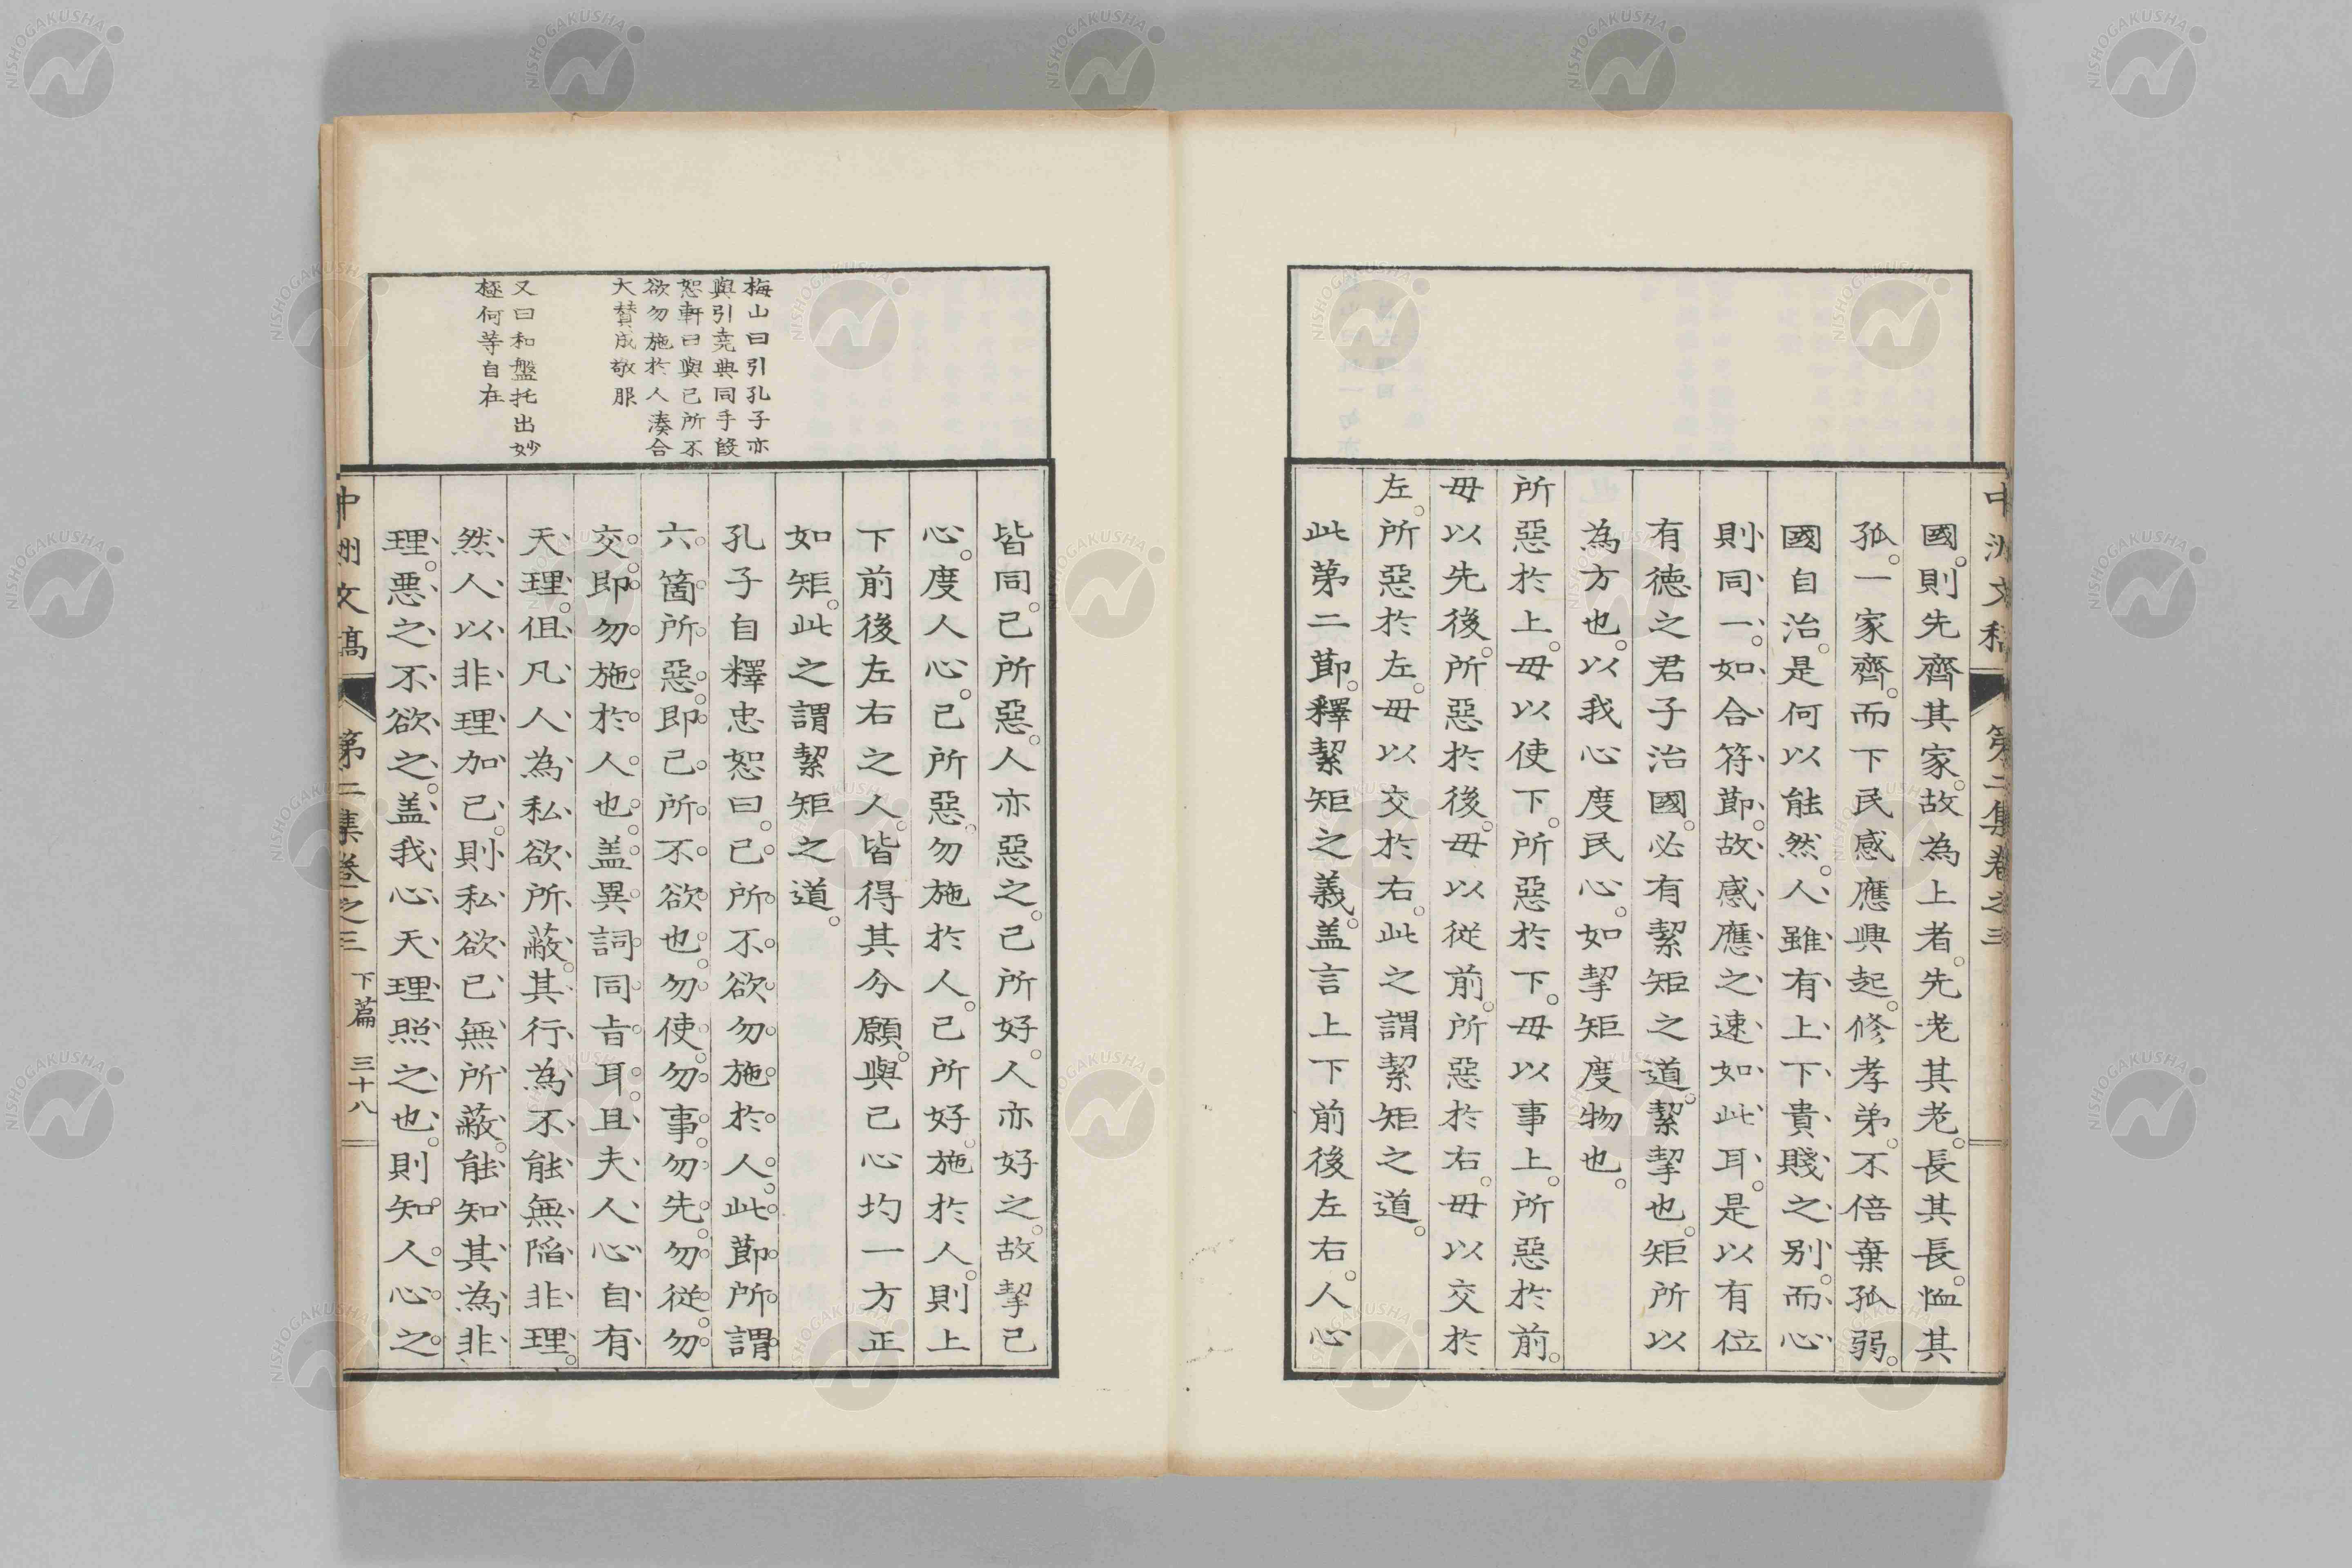 中洲文稿 第二集卷之三
國。則先齊其家。故為上者。先老其老。長其長。恤其
孤。一家齊。而下民感應興起。修孝弟。不倍棄孤弱。
國自治。是何以能然。人雖有上下貴賤之別。而心
則同一。如合符節。故感應之速如此耳。是以有位
有德之君子治國。必有絜矩之道。絜挈也。矩所以
為方也。以我心度民心。如挈矩度物也。
所惡於上。毋以使下。所惡於下。毋以事上。所惡於前。
毋以先後。所惡於後。毋以從前。所惡於右。毋以交於
左。所惡於左。毋以交於右。此之謂絜矩之道。
此第二節。釋絜矩之義。盖言上下前後左右。人心
皆同。己所惡。人亦惡之。己所好。人亦好之。故挈己
心。度人心。己所惡。勿施於人。己所好。施於人。則上
下前後左右之人。皆得其分願。與己心均一方正
如矩。此之謂絜矩之道。
梅山曰引孔子亦
與引堯典同手段
恕軒曰與己所不
欲勿施於人湊合
大賛成敬服
孔子自釋忠恕曰。己所不欲。勿施於人。此節所謂
六箇所惡。即己所不欲也。勿使。勿事。勿先。勿從。勿
交。即勿施於人也。盖異詞同旨耳。且夫人心自有
又曰和盤托出妙
極何等自在
天理。但凡人為私欲所蔽。其行為不能無陷非理。
然人以非理加己。則私欲已無所蔽。能知其為非
理。惡之不欲之。盖我心天理照之也。則知人心之
中洲文稿 第二集卷之三 下篇 三十八
NISHOGAKUSHA